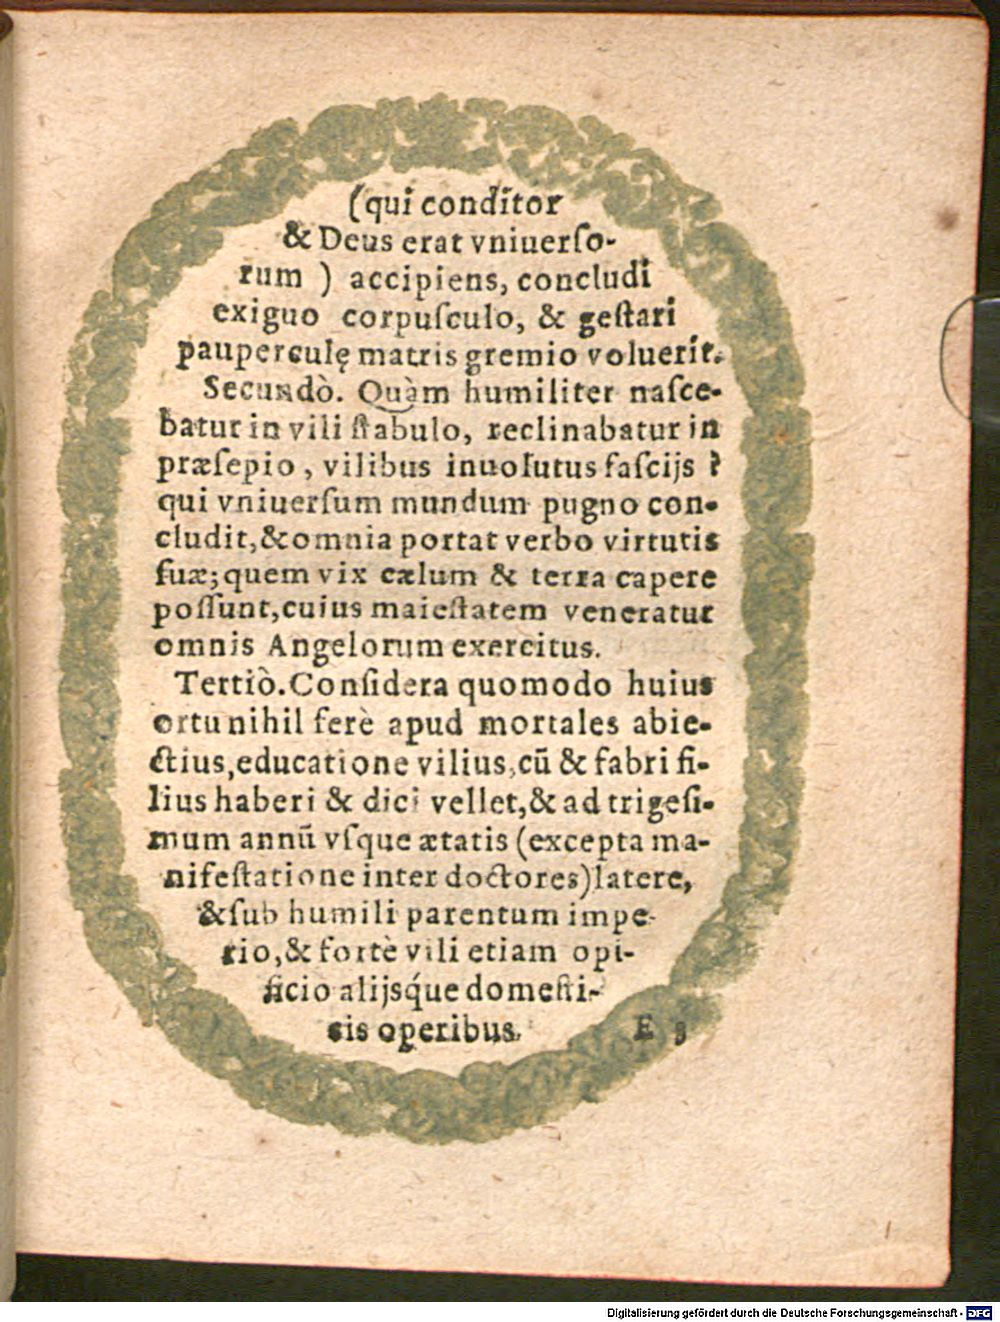 (qui conditor
& Deus erat vniuerſo-
rum ) accipiens, concludi
exiguo corpuſculo, & geſtari
pauperculę matris gremio voluerit.
Secundò. Quàm humiliter naſce-
batur in vili ſtabulo, reclinabatur in
præſepio, vilibus inuolutus faſcijs ?
qui vniuerſum mundum pugno con-
cludit,&omnia portat verbo virtutis
ſuæ; quem vix cælum & terra capere
poſſunt,cuius maieſtatem veneratur
omnis Angelorum exercitus.
Tertiò. Conſidera quomodo huius
ortu nihil ferè apud mortales abie-
ctius,educatione vilius,cū & fabri fi-
lius haberi & dici vellet,& ad trigeſi-
mum annū vſque ætatis (excepta ma-
nifeſtatione inter doctores)latere,
&ſub humili parentum impe-
rio,& fortè vili etiam opi-
ficio alijsq́ue domeſti-
cis operibus.
E 3
Digitalisierung gefördert durch die Deutsche Forschungsgemeinschaft - DFG